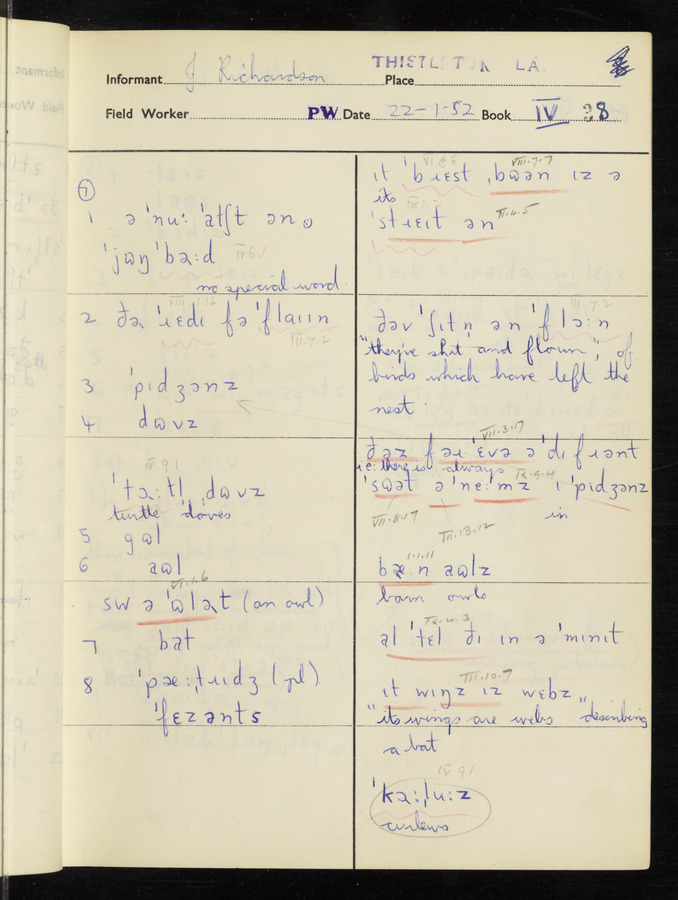 THISTLETON LA.
Informant J Richardson Place
Field Worker PW Date 22-1-52 Book IV 8
⑦
1 ə ˈnuː ˈatʃt ən
ˈjɷŋ ˈbəːd IV.6.1
no special word
VIII.1.16
2 ðə ˈɹɛdɪ fə ˈflaɪɪn
VII.7.2
3 ˈpɪdʒənz
4 dɷvz
IV.9.1
ˈtəːtl ˌdɷvz
turtle doves
5 gɷl
6 aɷl
VI.1.6
sw ə ˈɷlət (an owl)
7 bat
8 ˈpæːˌtɹɪdʒ (pl)
ˈfɛzənts
VII.7.7
ɪt ˈbɹɛst ˌbɷən ɪz ə
its
ˈstɹɛɪt ən VI.4.5
VII.7.2
ðəv ˈʃɪtn̩ ən ˈfləːn
"they're shit and flown", of
birds which have left the
nest
VII.3.17
ðəz fəɹ ˈɛvə əˈdɪfɹənt
i.e. there is always IX.9.4
ˈsɷət əˈneːmz ɪ ˈpɪdʒənz
in
VII.8.17
VII.13.12
1.1.11
bæːn aɷlz
barn owls
IX.4.3
al ˈtɛl ðɪ ɪn ə ˈmɪnɪt
III.10.7
ɪt wɪŋz ɪz wɛbz
"its wings are webs" describing
a bat
IV.9.1
ˈkəːˌluːz
curlews